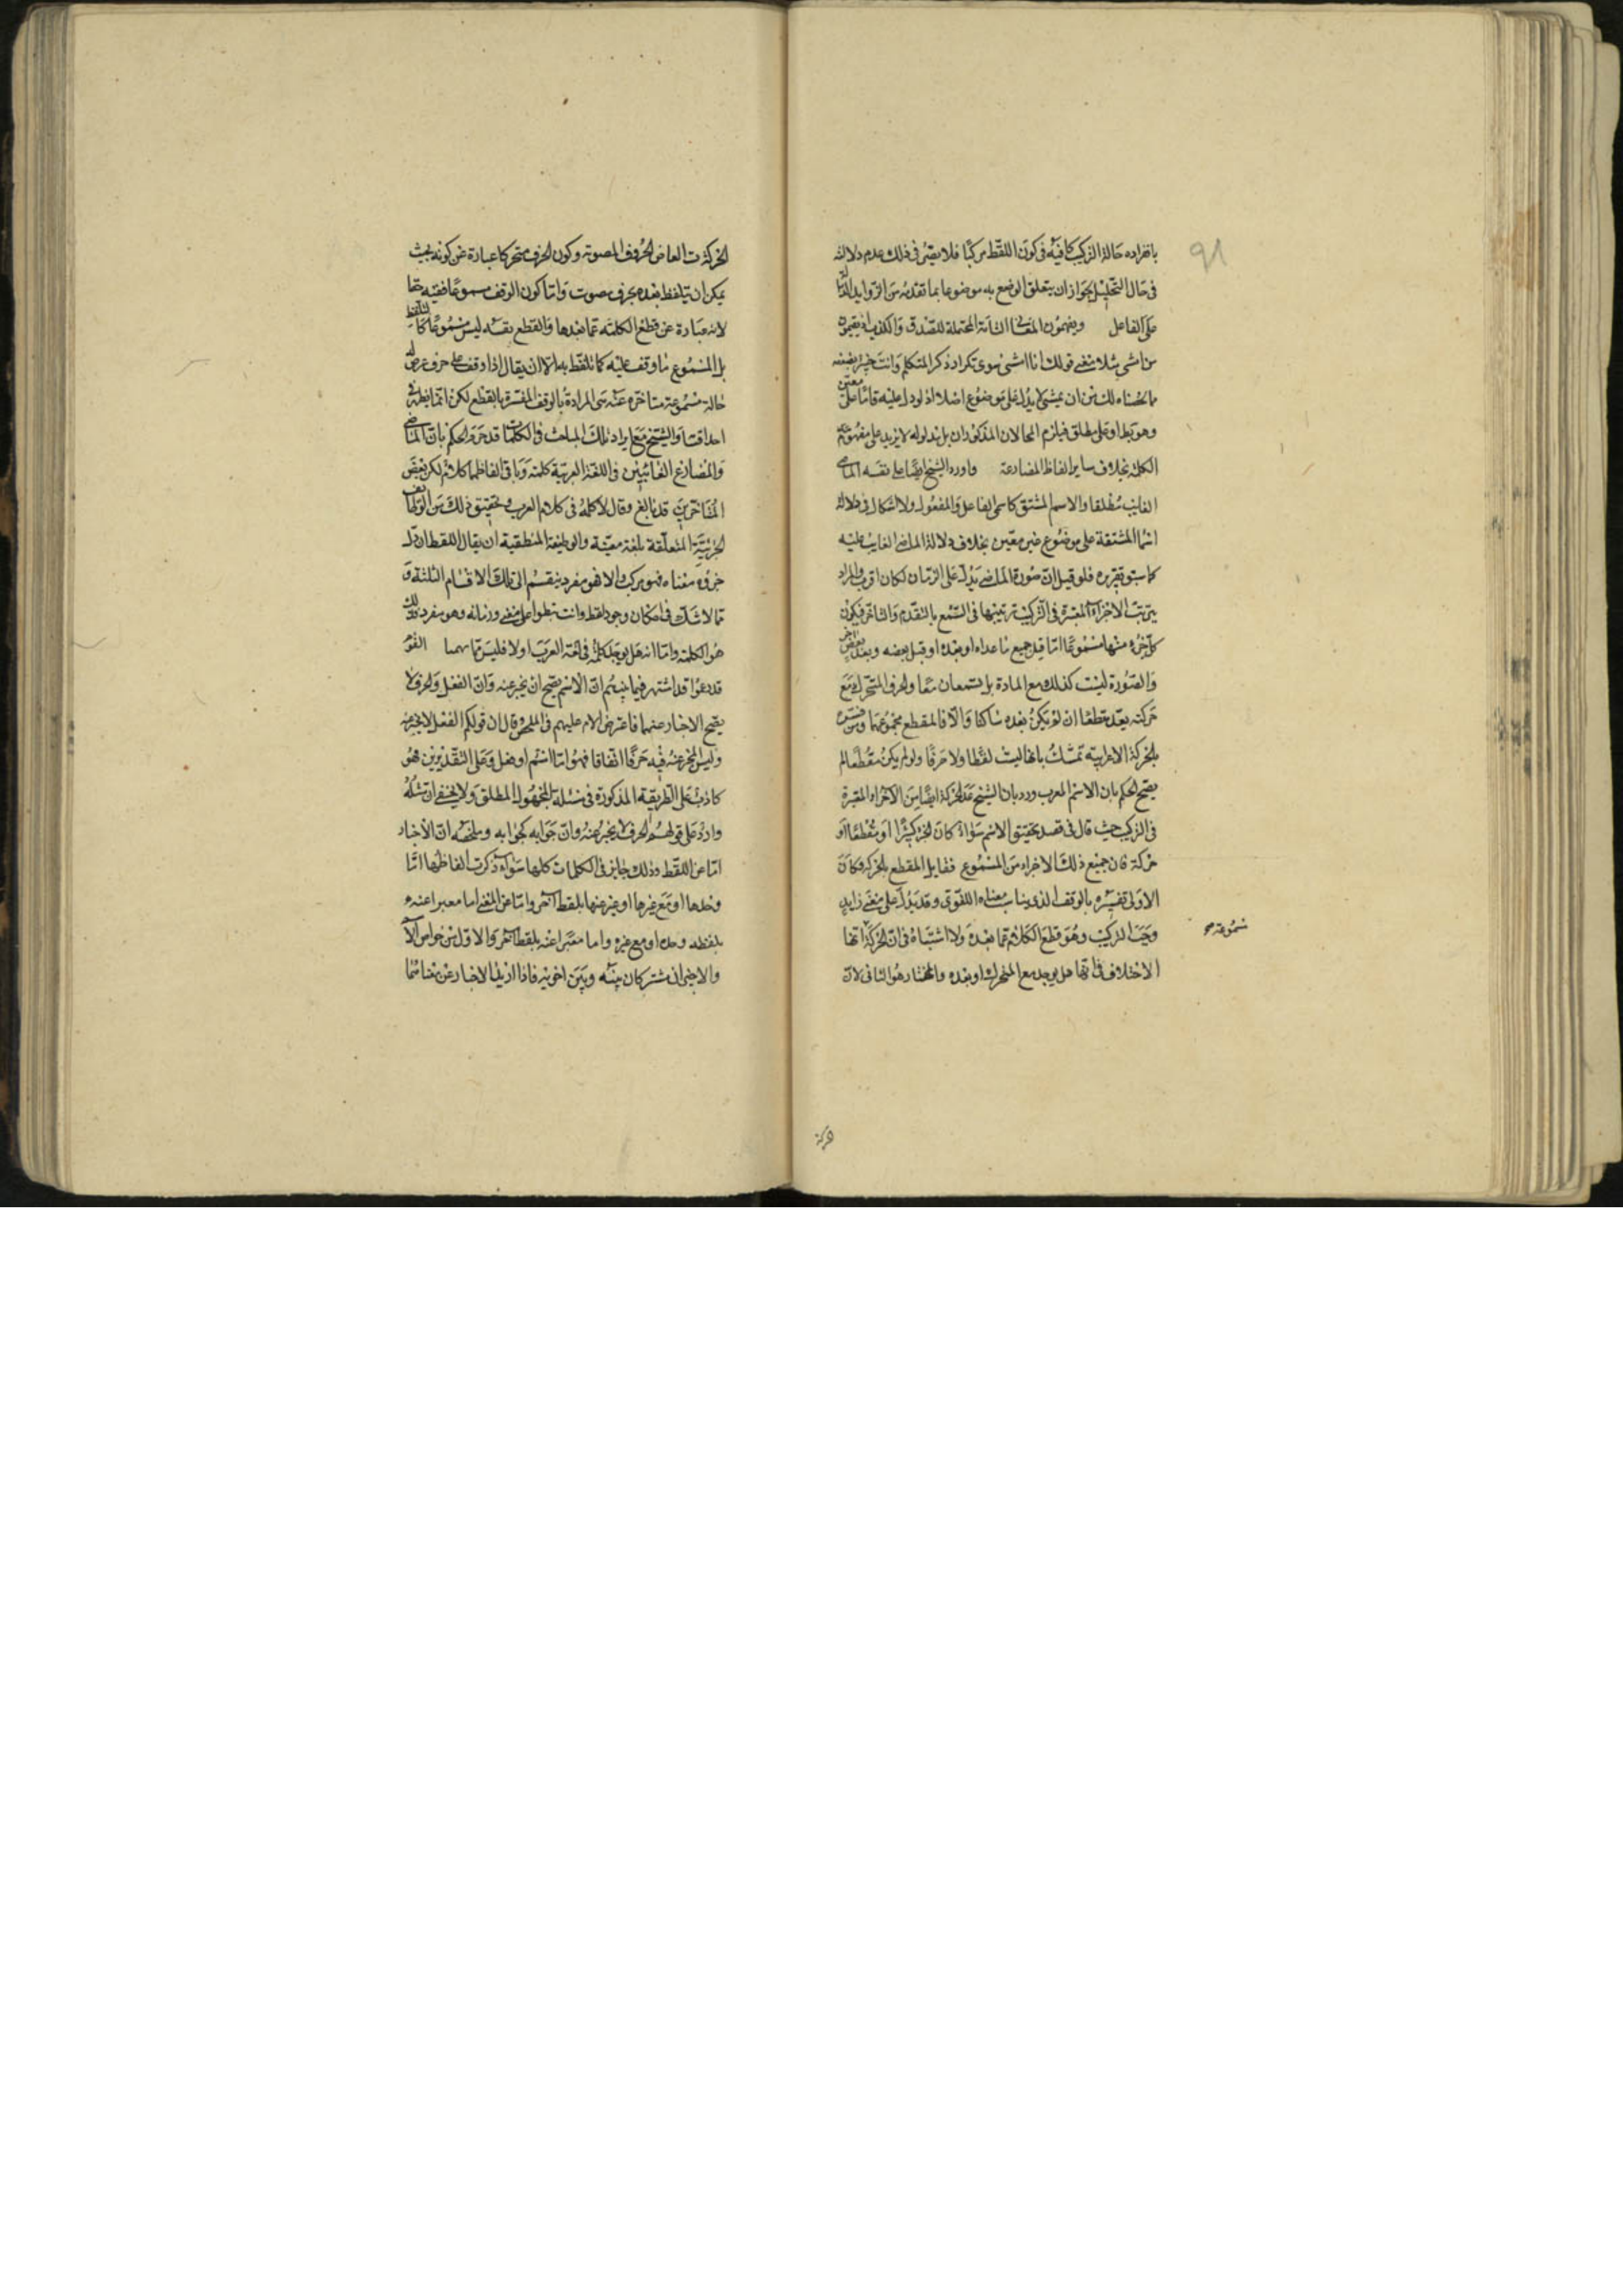 ٩١
بانفراده حالة التركيب كافية فى كون اللفظ مركبا فلا يضر فى ذلك عدم دلالته
فى حال التحليل لجواز ان يتعلق الوضع به موضوعا بما تقدمه من الزوايد الدالة
على الفاعل ويفهمون المعنى التامة المحتملة للصدق والكذب اذ يفهمون
من امشى مثلا معنى قولك انا امشى سوى تكرار ذكر المتكلم وانت خبير بضعفه
مما لحضناه لك من ان يمشى لا يدل على موضوع اصلا اذ لو دل عليه فاما على معين
وهو بط او على مطلق فيلزم المحالان المذكوران بل مدلوله لا يزيد على مفهوم
الكلمة بخلاف ساير الفاظ المضارعة واورد الشيخ ايضا على نفسه الماضى
الغايب مطلقا والاسم المشتق كاسمى الفاعل والمفعول ولا اشكال فى دلالة
اسما المشتقة على موضوع غير معين بخلاف دلالة الماضى الغايب عليه
كما سبق تقريره فلو قيل ان صورة الماضى يدل على الزمان لكان اقرب والمراد
بترتب الاجزاء المعتبرة فى التركيب ترتيبها فى السمع بالتقدم والتاخر فيكون
كل جزء منها مسموعا اما قبل جميع ما عداه او بعده او قبل بعضه وبعد بعض اخر
والصورة ليست كذلك مع المادة بل يسمعان معا والحرف المتحرك مع
حركته يعد مقطعا ان لم يكن بعده ساكنا والا فالمقطع مجموعهما ومن فسره
بالحركة الاعرابية تمسك بانها ليست لفظا ولا حرفا ولو لم يكن مقطعا لم
يصح الحكم بان الاسم المعرب ورد بان الشيخ عد الحركة ايضا من الاجزاء المعتبرة
فى التركيب حيث قال فى فصل تحقيق الاسم سواء كان الجزء كثيرا او مقطعا او
حركة فان جميع ذلك الاجزاء من المسموع فقابل المقطع بالحركة فكان
الاولى تفسيره بالوقف الذى يناسب معناه اللغوى وقد يدل على معنى زايد
وجب التركيب وهو قطع الكلام عما بعده ولا اشتباه فى ان الحركة انها
مسموعة صح
الاختلاف فى انها هل يوجد مع المتحرك او بعده والمختار هو الثانى لان
حركة
الحركة العاض الحروف المصوتة وكون الحرف متحركا عبارة عن كونه بحيث
يمكن ان يتلفظ بعده بحرف مصوت واما كون الوقف مسموعا ففيه خفا
لانه عبارة عن قطع الكلمة عما بعدها والقطع نفسه ليس مسموعا كالتلفظ
بل المسموع ما وقف عليه كما تلفظ به الا ان يقال اذا وقف على حرف عرض له
حالة مسموعة متاخرة عنه هى المرادة بالوقف المفسر بالقطع لكن
والشيخ مع ايراد تلك المباحث فى الكلمات قد جزم الحكم بان الماضى
والمضارع الغايبين فى اللغة العربية كلمة وباقى الفاظهما كلام لكن بعض
المتاخرين قد بالغ وقال لا كلمة فى كلام العرب وتحقيق ذلك من الوظايف
الجزئية المتعلقة بلغة معينة والوظيفة المنطقية ان يقال اللفظ ان دل
جزؤه معناه فهو مركب والا فهو مفرد ينقسم الى تلك الاقسام الثلثة و
مما لا شك فى امكان وجود لفظ وانت تطوا على معنى وزمانه وهو مفرد وذلك
هو الكلمة واما انه هل يوجد كلمة فى لغة العرب او لا فليس مما يهمنا القوم
قد دعوا قد اشتهر فيما بينهم ان الاسم يصح ان يخبر عنه وان الفعل والحرف لا
يصح الاخبار عنهما فاعترض الامام عليهم فى الملخص وقال ان قولكم الفعل لا يخبر عنه
وليس المخبر عنه فيه حرفا اتفاقا فهو اما اسم او فعل وعلى التقديرين فهو
كاذب على الطريقة المذكورة فى مسئلة المجهول المطلق ولا يخفى ان مثله
وارد على قولهم الحرف لا يخبر عنه وان جوابه كجوابه وملخصه ان الاخبار
اما عن اللفظ وذلك جايز فى الكلمات كلها سواء ذكرت الفاظها اما
وحدها او مع غيرها او عبر عنها بلفظ آخر واما عن المعنى اما معبرا عنه
بلفظه وحده او مع غيره واما معبرا عنه بلفظ آخر والاول من خواص الا
والاخيران مشتركان بينه وبين اخويه فاذا اريد الاخبار عن معناهما